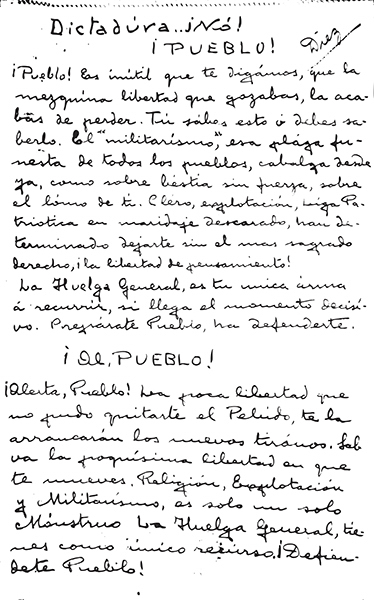 Dictadúra..¡Nó!
Diez
¡PUEBLO!
¡Pueblo! Es inútil que te digámos, que la
mezquina libertad que gozabas, la aca-
bas de perder. Tú sábes esto ó debes sa-
berlo. El "militarísmo", esa plága fu-
nesta de todos los pueblos, cabalga desde
ya, como sobre béstia sin fuerza, sobre
el lómo de tí. Clero, explotación, Liga Pa-
triotica en maridaje descarado, han de-
terminado dejarte sin el mas sagrado
derecho, ¡la libertad de pensamiento!
La Huelga General, es tu unica árma
á recurrir, si llega el momento decisí-
vo. Prepárate Pueblo, ha defenderte.
¡Al, PUEBLO!
¡Alerta, Pueblo! La poca libertad que
no pudo quitarte el Peludo, te la
arrancarán los nuevos tirános. Sal-
va la poquísima libertad en que
te mueves. Religión, Explotación
y Militarísmo, es solo un solo
Mónstruo La Huelga General, tie-
nes como único recurso. ¡Defien-
dete Pueblo!